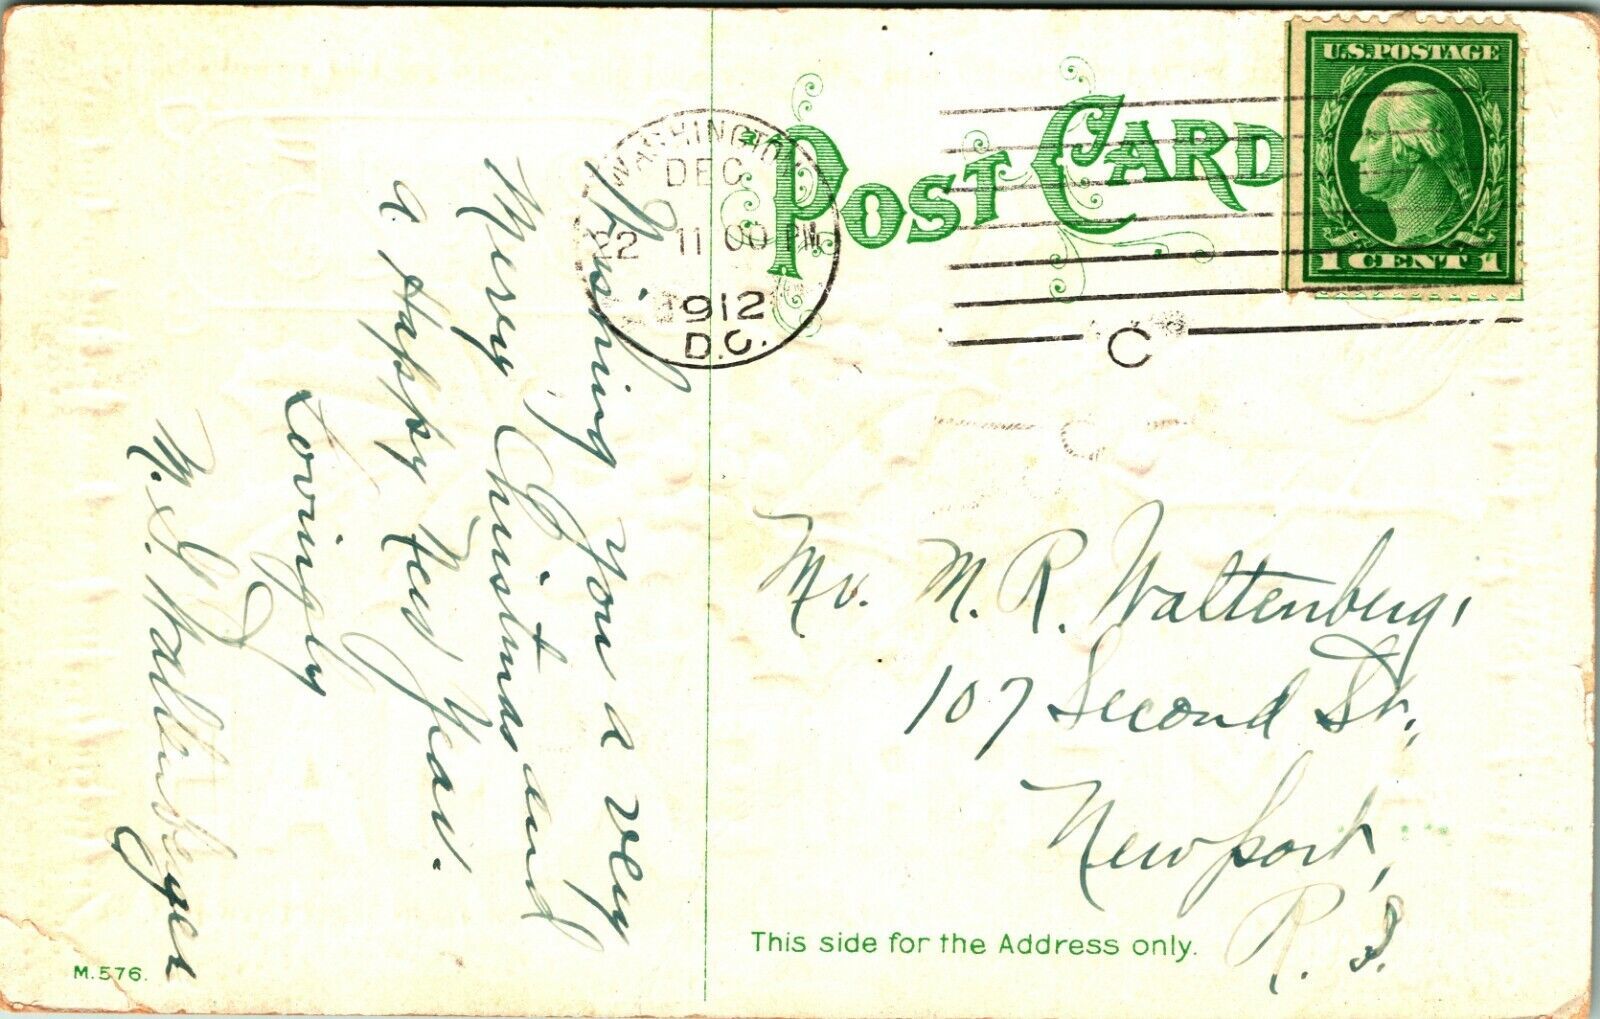 POST CARD
U.S. POSTAGE
1 CENT 1
WASHINGTON
DEC
22 11 00 PM
1912
D.C.
C
Wishing you a very
Merry Christmas and
a Happy New Year.
Lovingly
Mr. M. R. Waltenberg,
107 Second St.,
Newport,
R. I.
This side for the Address only.
M. 576.